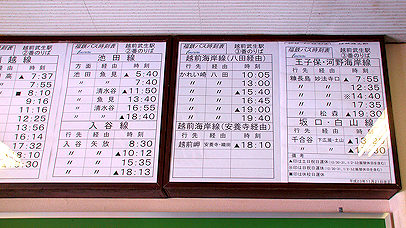 福鉄バス時刻表
越前武生駅
②番のりば
越線
7:37
7:55
8:10
9:16
17:16
12:27
13:56
16:14
17:32
18:10
福鉄バス時刻表
越前武生駅
②番のりば
池田線
方面 経由 時刻
池田 魚見 ▲5:40
〃 〃 7:40
〃 清水谷 ▲11:50
〃 魚見 13:40
〃 清水谷 16:55
〃 〃 ▲18:40
入谷線
行先 経由 時刻
入谷 矢放 8:30
〃 〃 ▲10:12
〃 〃 15:35
〃 〃 ▲18:13
福鉄バス時刻表
越前武生駅
②番のりば
越前海岸線(八田経由)
行先 経由 時刻
かれい崎 八田 10:05
〃 〃 13:00
〃 〃 ▲15:00
〃 〃 ▲16:45
〃 〃 ▲19:00
〃 〃 ▲19:40
越前海岸線(安養寺経由)
行先 経由 時刻
越前岬 安養寺・織田 ▲18:10
福鉄バス時刻表
越前武生駅
②番のりば
王子保・河野海岸線
行先 経由 時刻
糠長島 妙法寺口 ▲7:55
〃 〃 12:35
〃 〃 ※14:40
〃 〃 ▲17:35
〃 松森 ▲19:30
坂口・白山線
行先 経由 時刻
千合谷 ▲13:20
〃 〃 ▲18:10
備考